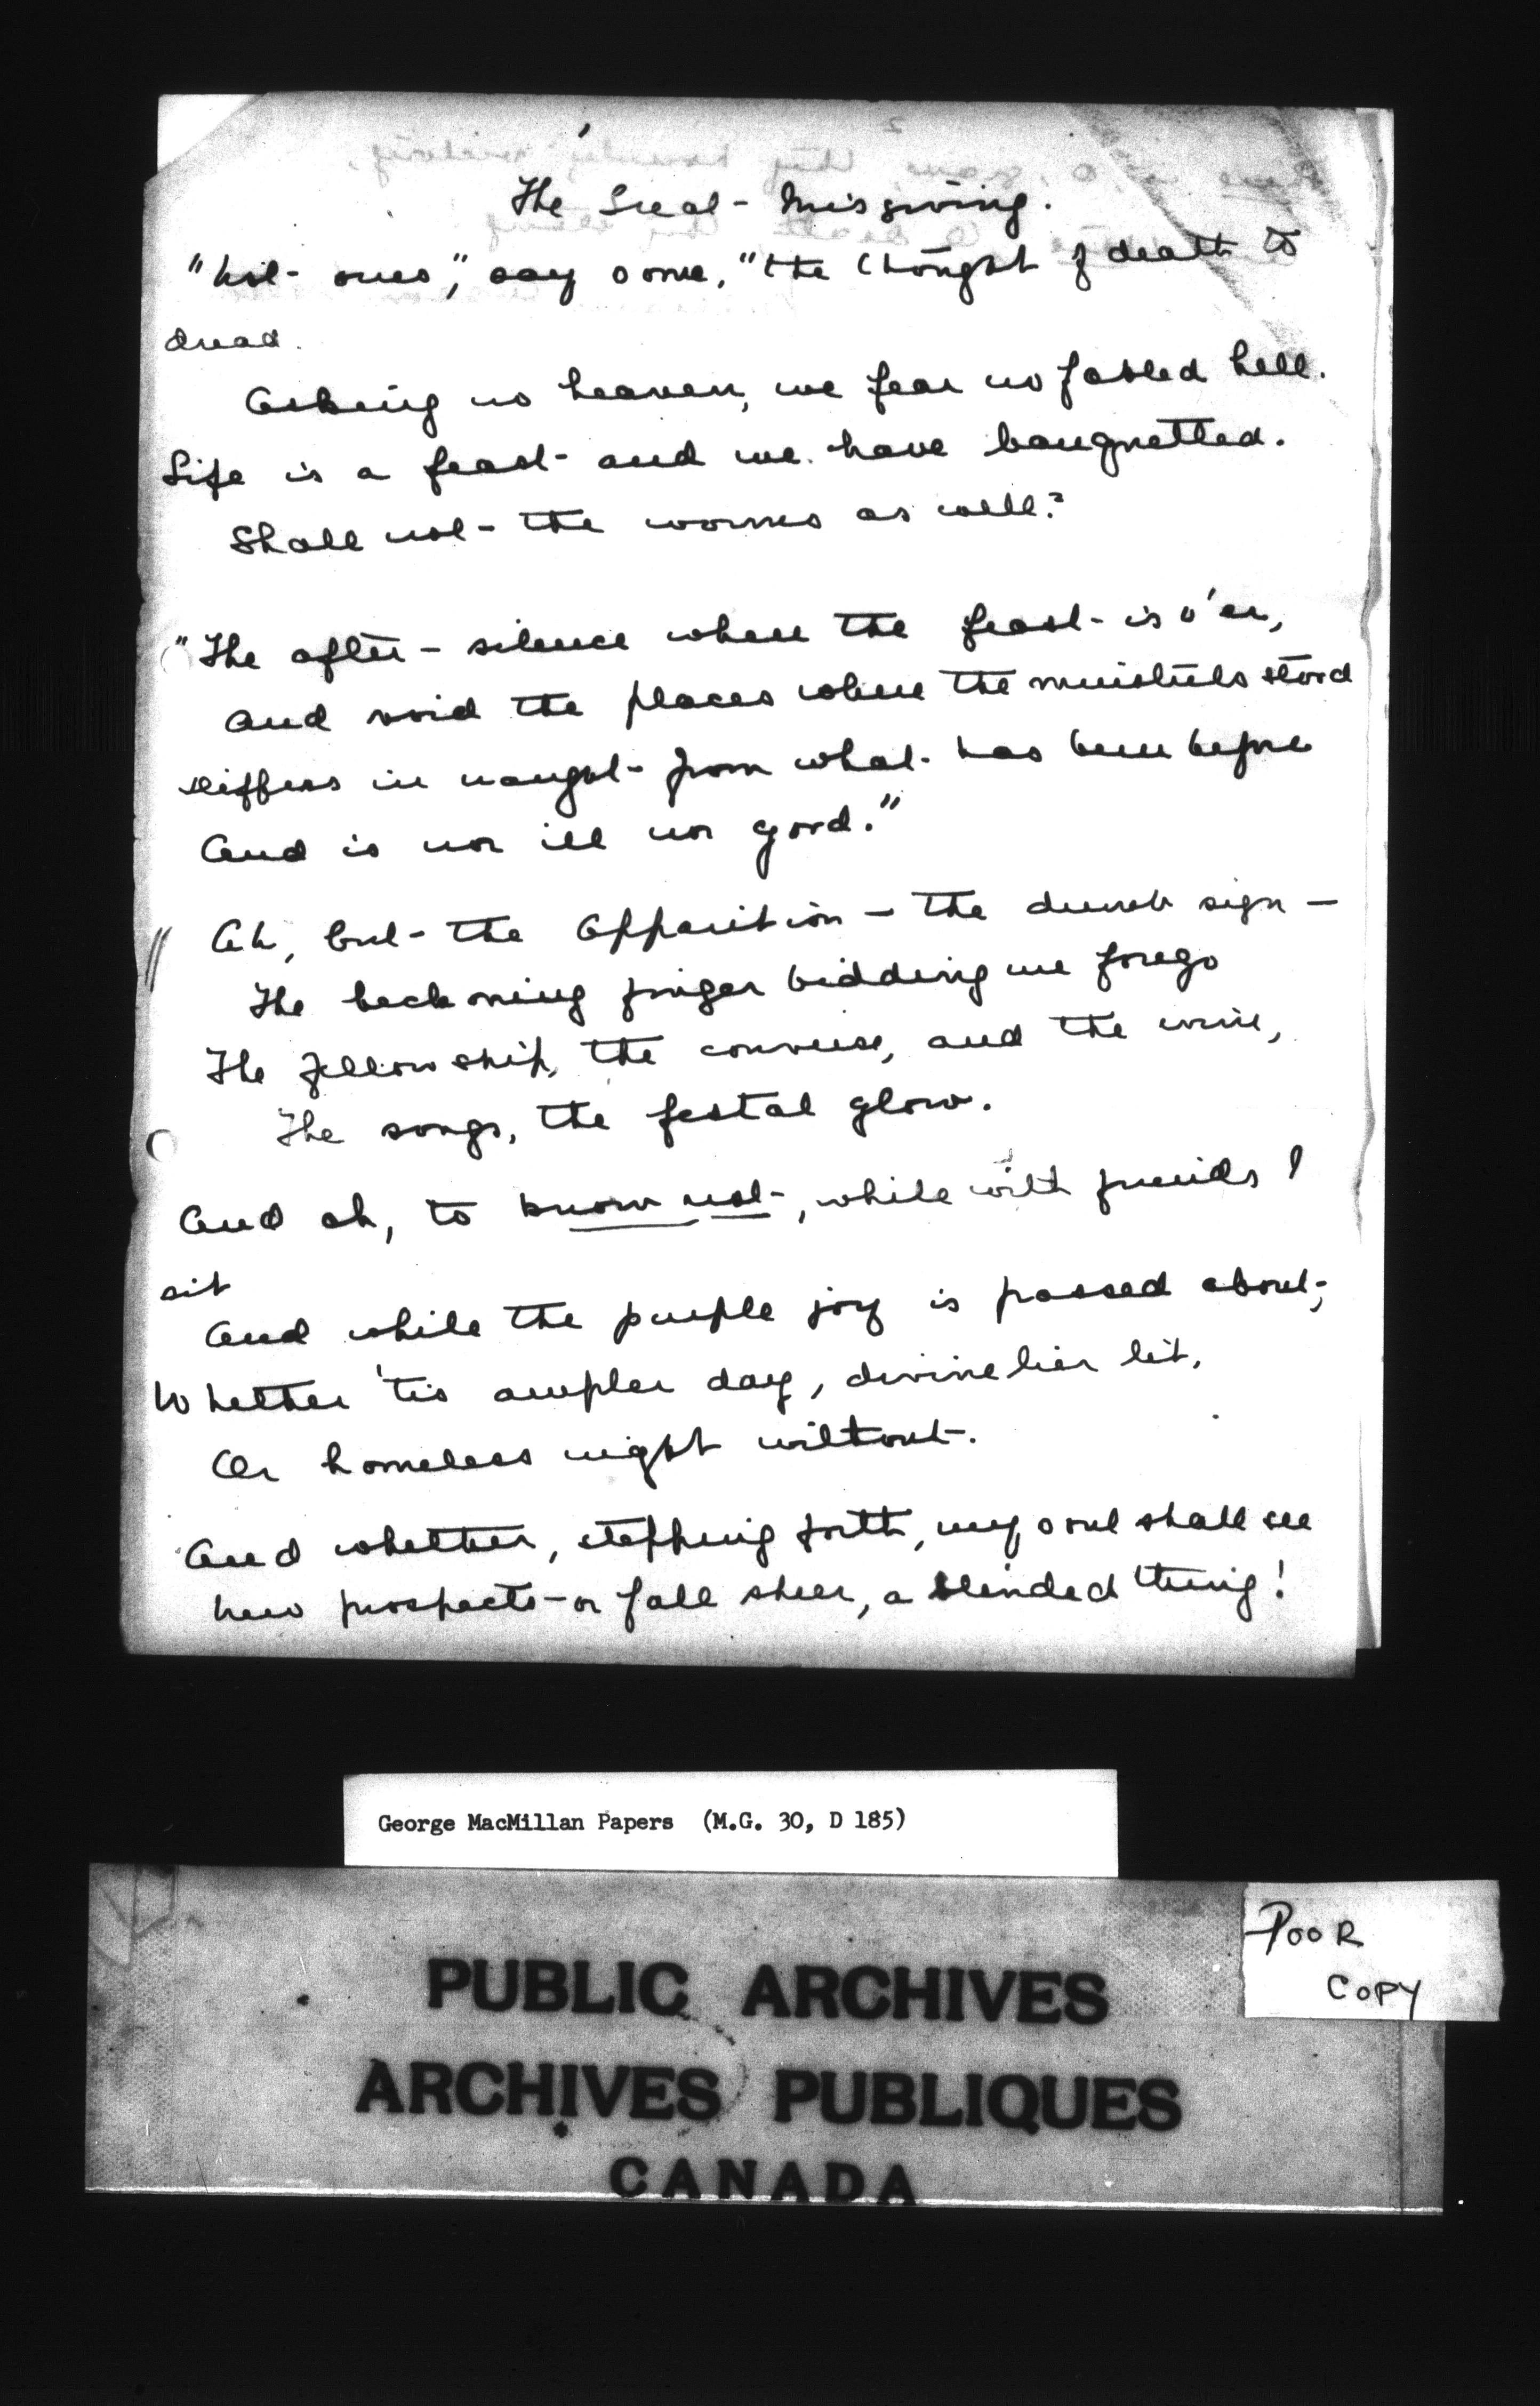 The Great Misgiving.
"Not ours," say some, "the thought of death to
dread.
Asking no heaven, we fear no fabled hell.
Life is a feast and we have banquetted.
Shall not the worms as well?
"The after-silence when the feast is o'er,
And void the places where the minstrels stood
Differs in naught from what has been before
And is nor ill nor good."
Ah, but the Apparition — the dumb sign —
The beckoning finger bidding me forego
The fellowship, the converse, and the wine,
The songs, the festal glow.
And oh, to know not, while with friends I
sit
And while the purple joy is passed about,
Whether 'tis ampler day, divinelier lit,
Or homeless night without.
And whether, stepping forth, my soul shall see
New prospects - or fall sheer, a blinded thing!
George MacMillan Papers (M.G. 30, D 185)
POOR
COPY
PUBLIC ARCHIVES
ARCHIVES PUBLIQUES
CANADA